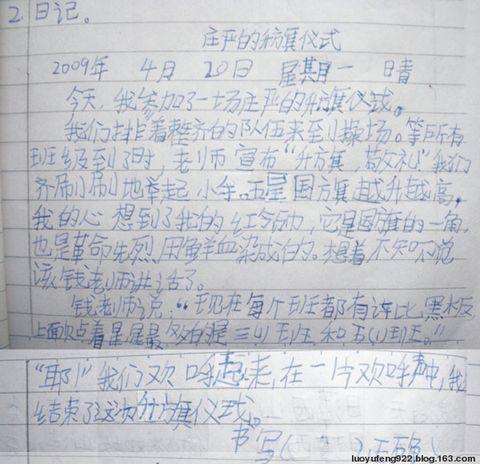 2.日记。
庄严的升旗仪式
2009年 4月 20日 星期一 晴
今天,我参加了一场庄严的升旗仪式。
我们排着整齐的队伍来到操场。等所有
班级到了时,老师宣布“升旗,敬礼”我们
齐刷刷地举起小手。五星国旗越升越高,
我的心想到了我的红领巾,它是国旗的一角,
也是革命先烈用鲜血染成的。想着不知不觉
该钱老师讲话了。
钱老师说:“现在每个班都有评比黑板
上面 点着星星最 的是三(4)班和五(1)班。”
“耶!”我们欢呼起来,在一片欢呼声中,我
结束了这次升旗仪式。
书写( )
luoyufeng922.blog.163.com